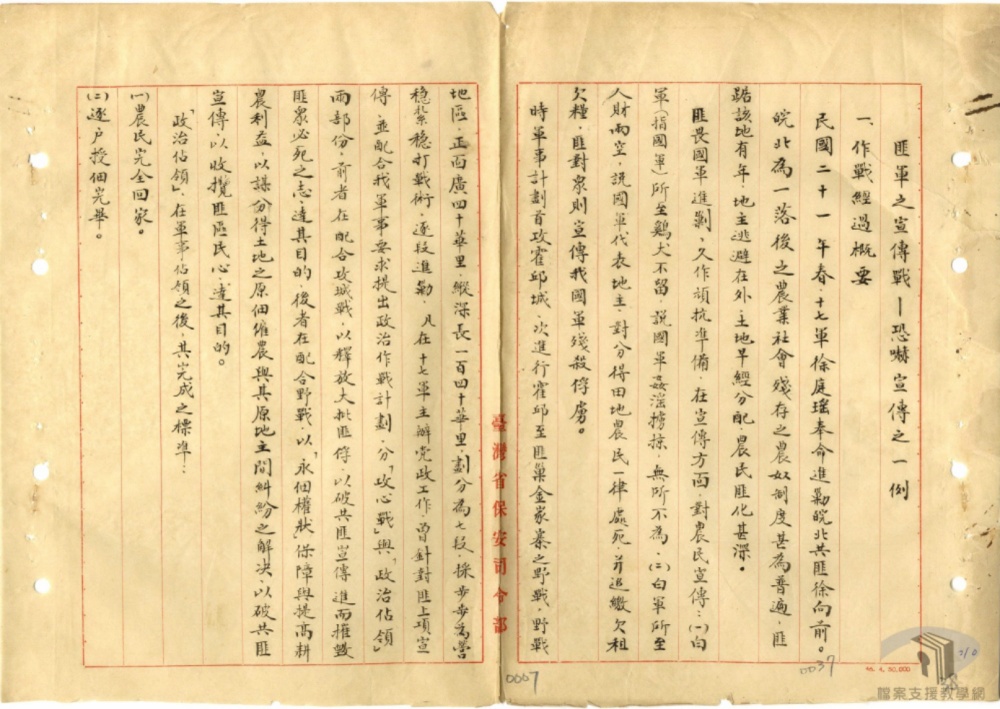 匪軍之宣傳戰—恐嚇宣傳之一例
一、作戰經過概要
民國二十一年春、十七軍徐庭瑤奉命進勦皖北共匪徐向前。
皖北為一落後之農業社會殘存之農奴制度甚為普遍、匪
踞該地有年、地主逃避在外、土地早經分配、農民匪化甚深。
匪畏國軍進剿、久作頑抗準備、在宣傳方面、對農民宣傳：(一)白
軍(指國軍)所至鷄犬不留、說國軍姦淫擄掠、無所不為、(二)白軍所至
人財兩空、說國軍代表地主、對分得田地農民一律處死、并追繳欠租
欠糧、匪對眾則宣傳我國軍殘殺俘虜。
時軍事計劃首攻霍邱城、次進行霍邱至匪巢金家寨之野戰、野戰
地區、正面廣四十華里、縱深長一百四十華里、劃分為七段、採步步為營
穩紮穩打戰術、逐段進勦、凡在十七軍主辦党政工作、曾針對匪上項宣
傳、並配合我軍事要求提出政治作戰計劃、分「攻心戰」與「政治佔領」
兩部份、前者在配合攻城戰、以釋放大批匪俘、以破共匪宣傳進而摧毀
匪眾必死之志、達其目的、後者在配合野戰、以「永佃權狀」保障與提高耕
農利益、以謀分得土地之原佃僱農與其原地主間糾紛之解決、以破共匪
宣傳、以收攬匪區民心、達其目的。
「政治佔領」、在軍事佔領之後、其完成之標準：
(一)農民完全回家。
(二)逐户授佃完畢。
臺灣省保安司令部
0007
0037
45. 4. 50,000
210
檔案支援教學網